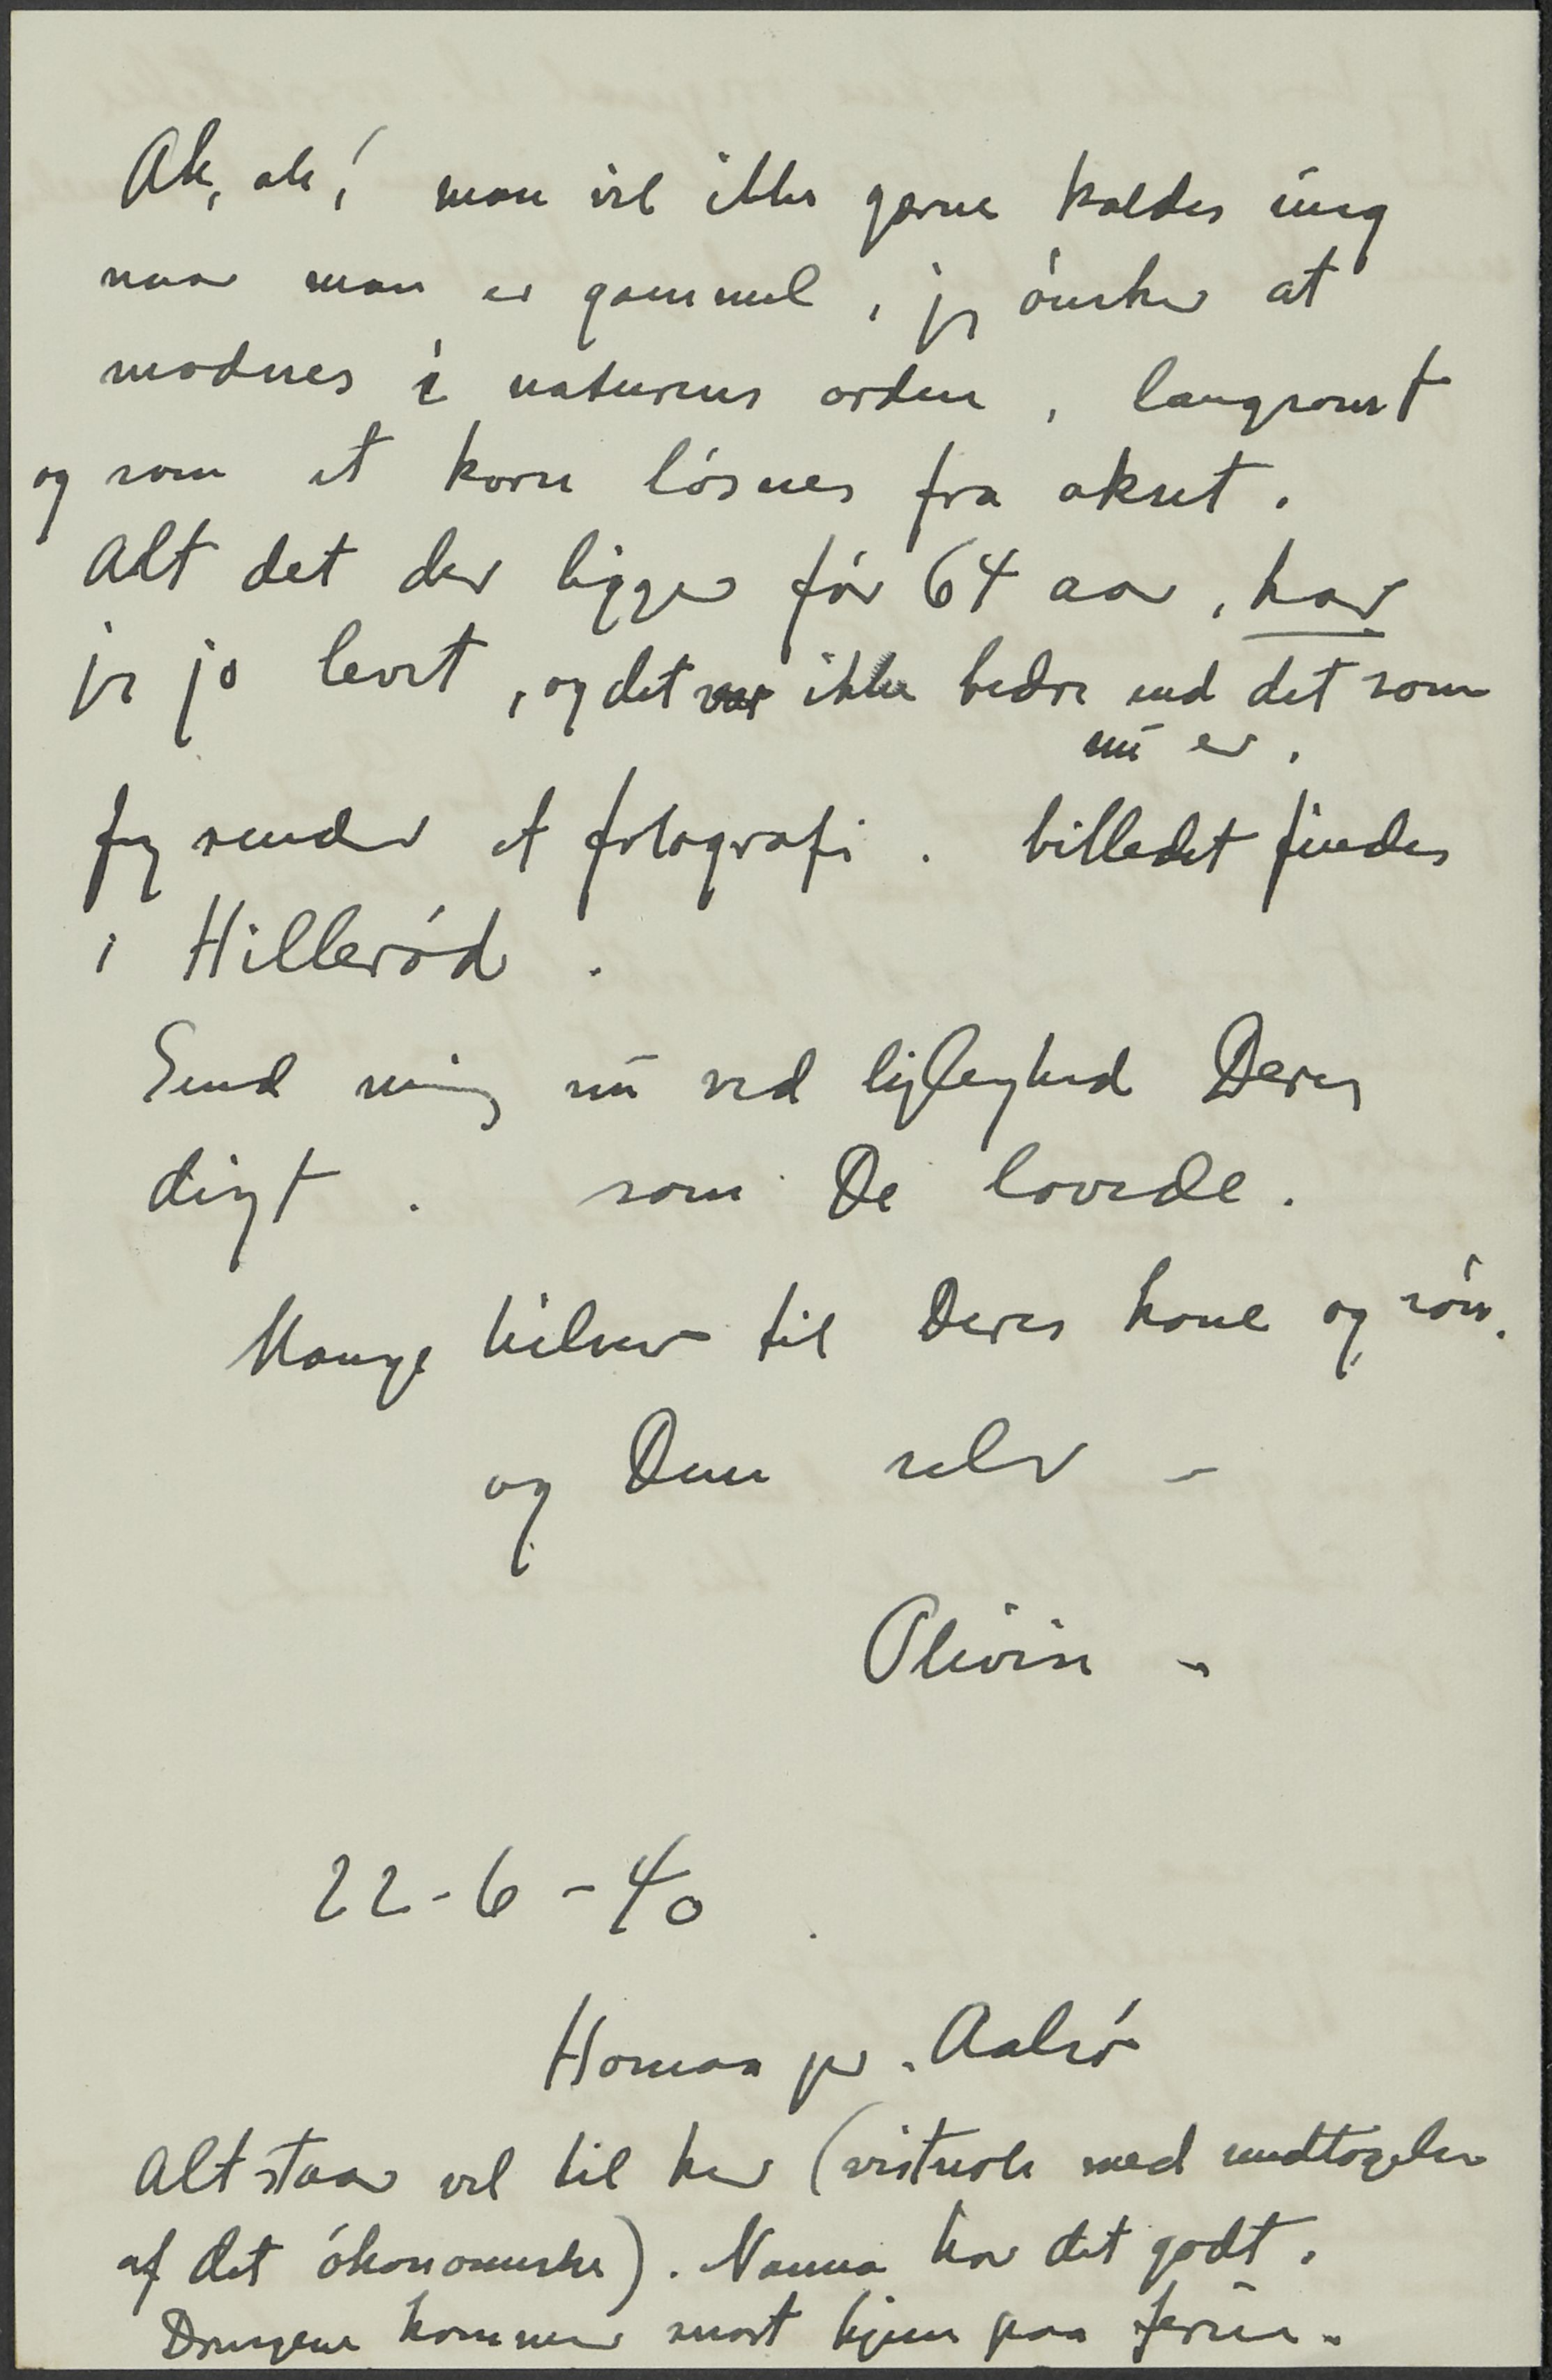 Ak, ak! man vil ikke gerne kaldes ung
naar man er gammel, jeg ónsker at
modnes i naturens orden, langsomt
og som et korn lósnes fra akset.
Alt det der ligger fór 64 aar, har
jeg jo levet, og det var ikke bedre end det som
nu er.
Jeg sender et fotografi. billedet findes
i Hilleród.
Send mig nu ved lejlighed Deres
digt. som De lovede.
Mange hilsner til Deres kone og són.
og Dem selv –
Olivin –
22-6-40
Homaa pr. Aalsó
Alt staar vel til her (vistnok med undtagelse
af det ókonomiske). Nanna har det godt.
Drengene kommer snart hjem paa ferie.